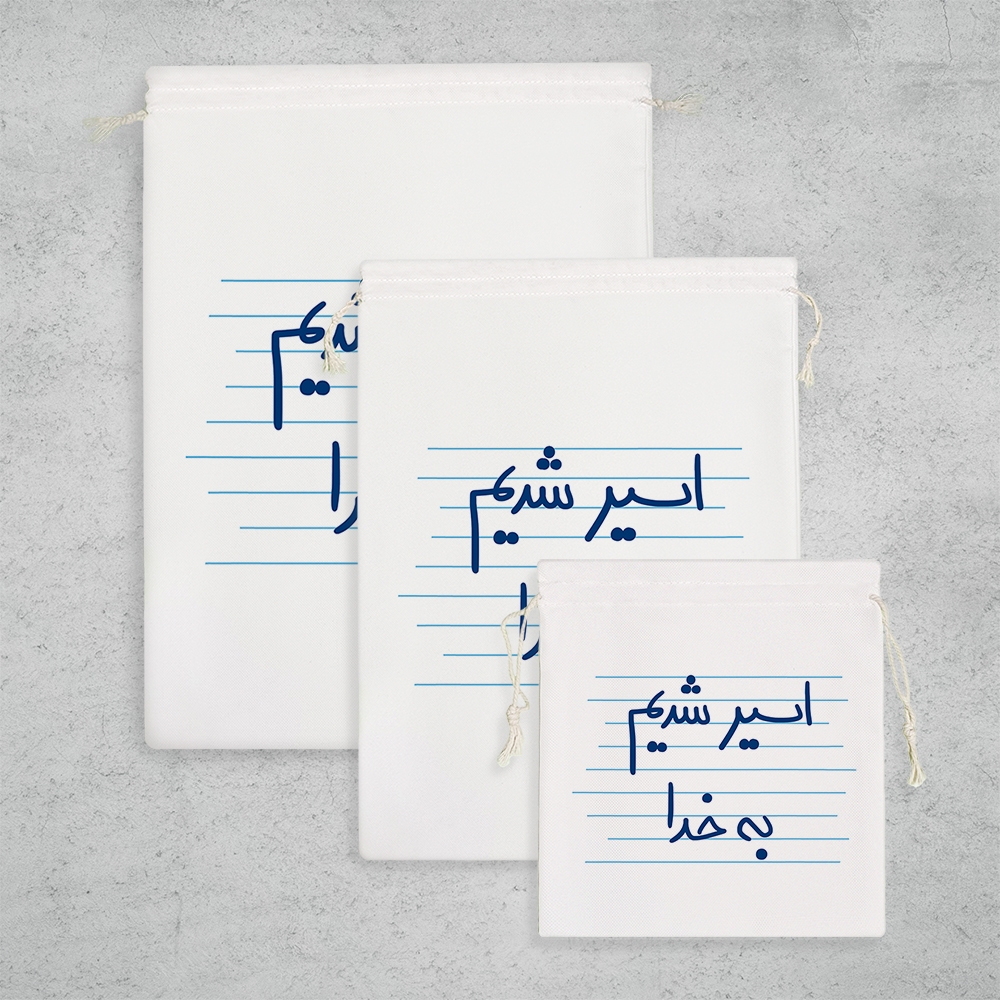 اسیر شدیم
اسیر شدیم
به خدا